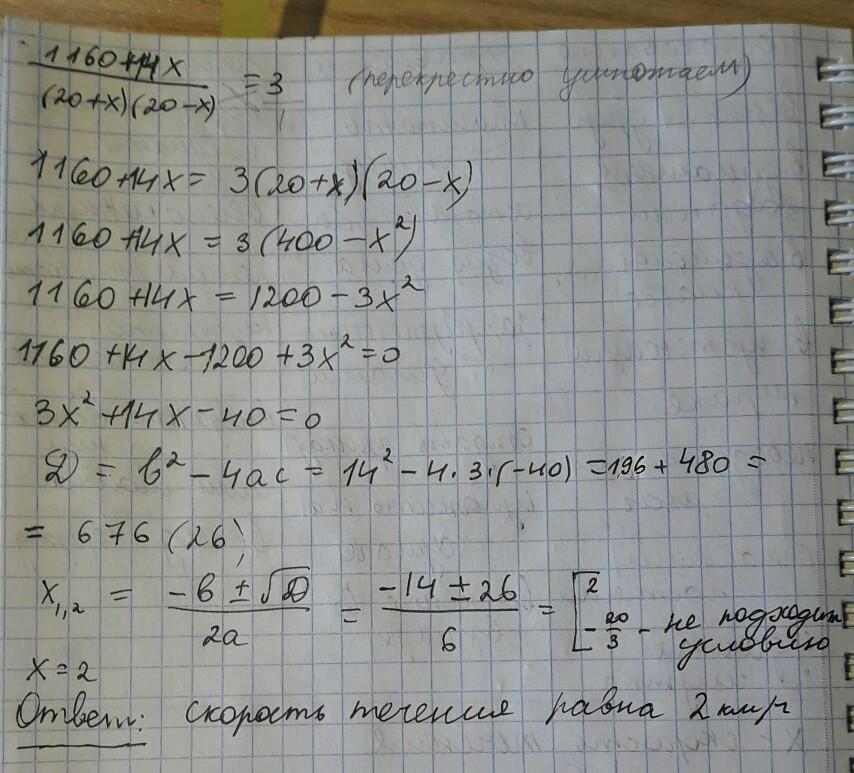 1160+14x / (20+x)(20-x) = 3 (перекрестно умножаем)
1160+14x = 3(20+x)(20-x)
1160+14x = 3(400-x²)
1160+14x = 1200-3x²
1160+14x-1200+3x²=0
3x²+14x-40=0
D = b²-4ac = 14²-4·3·(-40) = 196+480 =
= 676 (26)
x₁,₂ = -b±√D / 2a = -14±26 / 6 = [ 2 ; -20/3 - не подходит условию
x=2
Ответ: скорость течения равна 2 км/ч